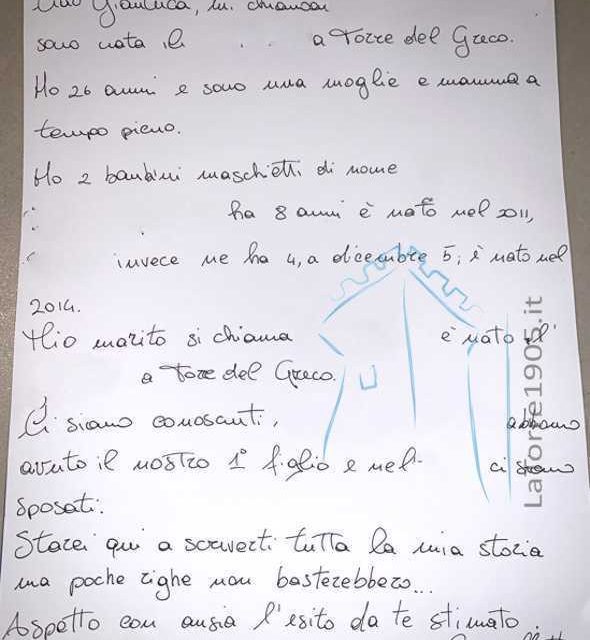 Ciao Gianluca, mi chiamo
sono nata il a Torre del Greco.
Ho 26 anni e sono una moglie e mamma a
tempo pieno.
Ho 2 bambini maschietti di nome
ha 8 anni è nato nel 2011,
invece ne ha 4, a dicembre 5; è nato nel
2014.
Mio marito si chiama è nato il
a Torre del Greco.
Ci siamo conosciuti, abbiamo
avuto il nostro 1° figlio e nel ci siamo
sposati.
Starei qui a scriverti tutta la mia storia
ma poche righe non basterebbero...
Aspetto con ansia l'esito da te stimato.
Latorre1905.it